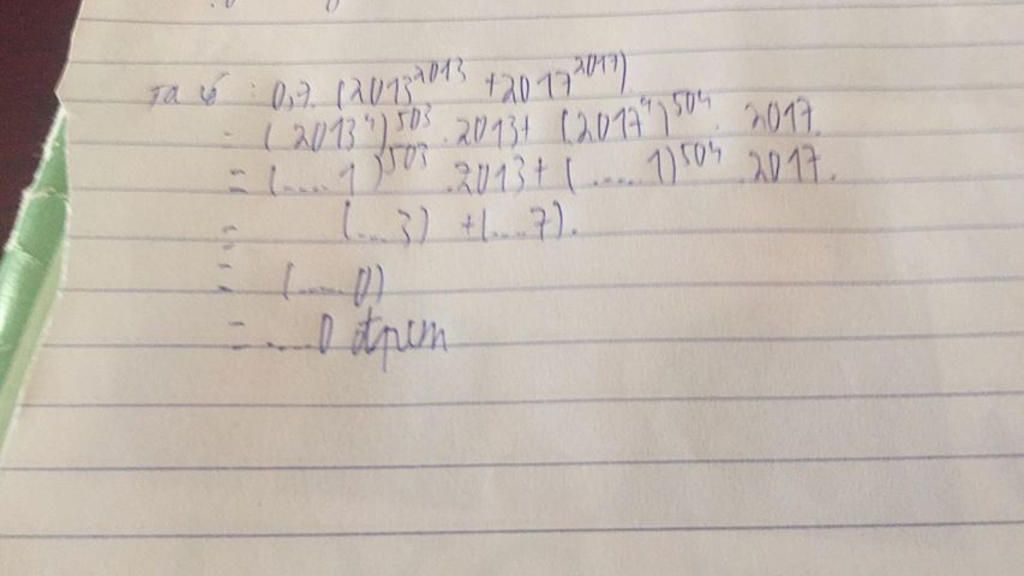 Ta có : 0,7. (2013^2013 + 2017^2017)
= (2013^4)^503 . 2013 + (2017^4)^504 . 2017.
= (.....1)^503 . 2013 + (.....1)^504 . 2017.
= (...3) + (....7).
= (.....0)
= ....0 đpcm